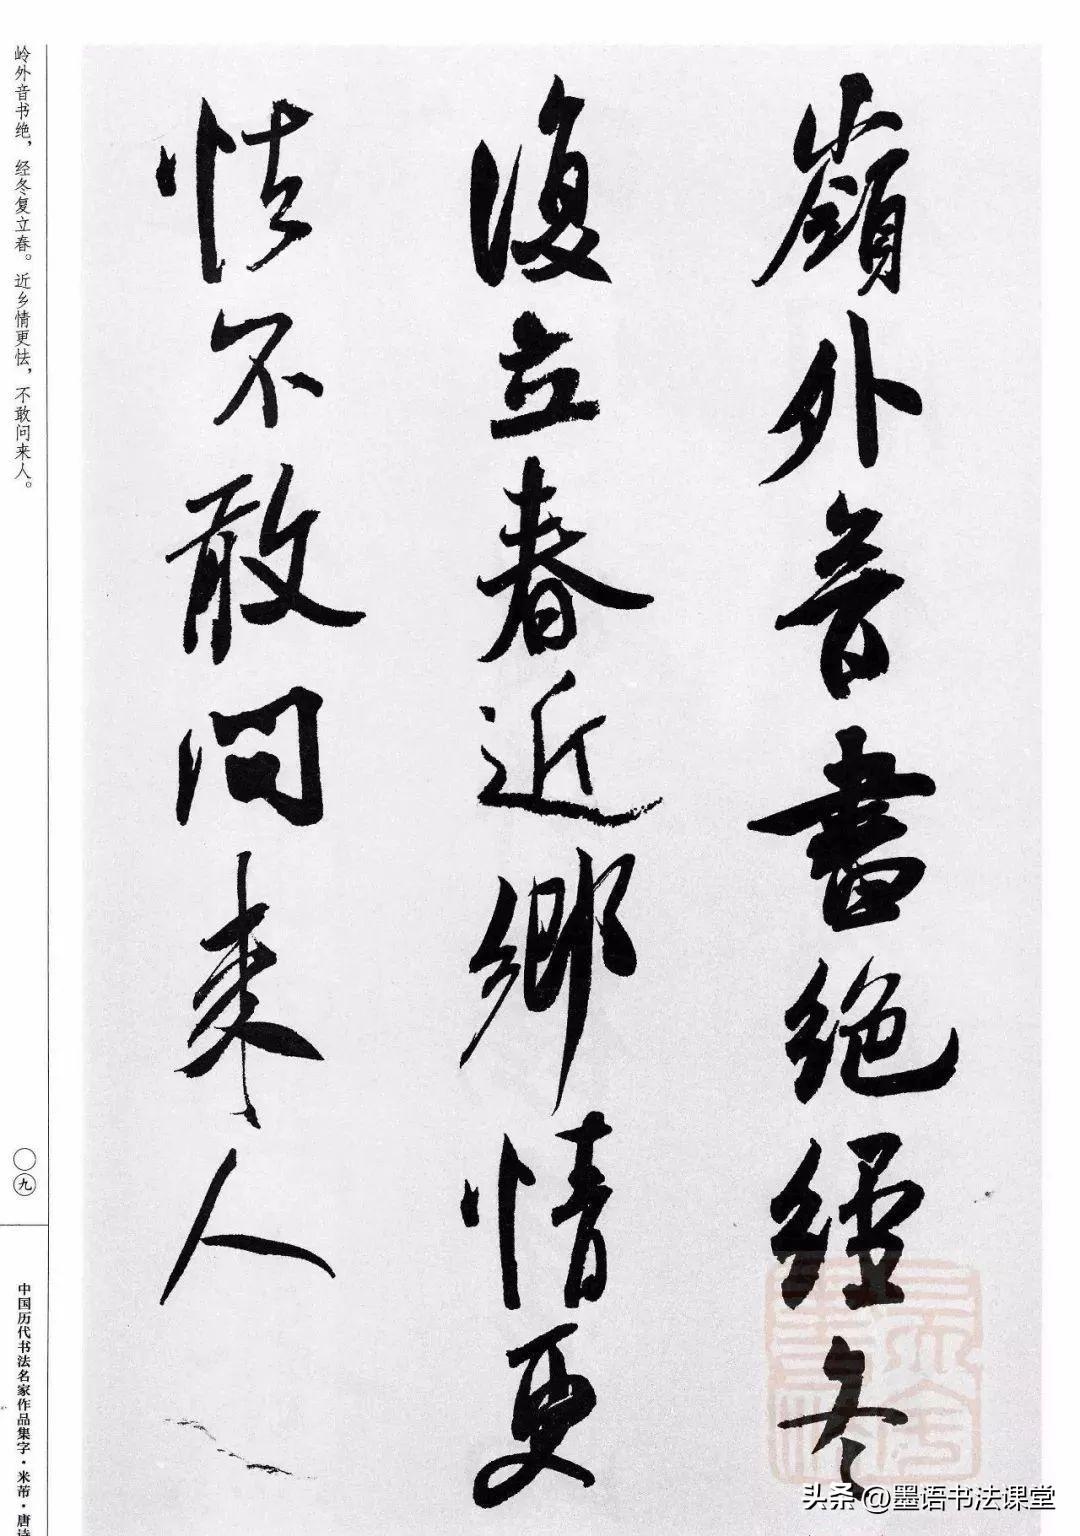 嶺外音書絶經冬
復立春近鄉情更
怯不敢問来人
岭外音书绝，经冬复立春。近乡情更怯，不敢问来人。
〇九
中国历代书法名家作品集字·米芾·唐诗
头条 @墨语书法课堂